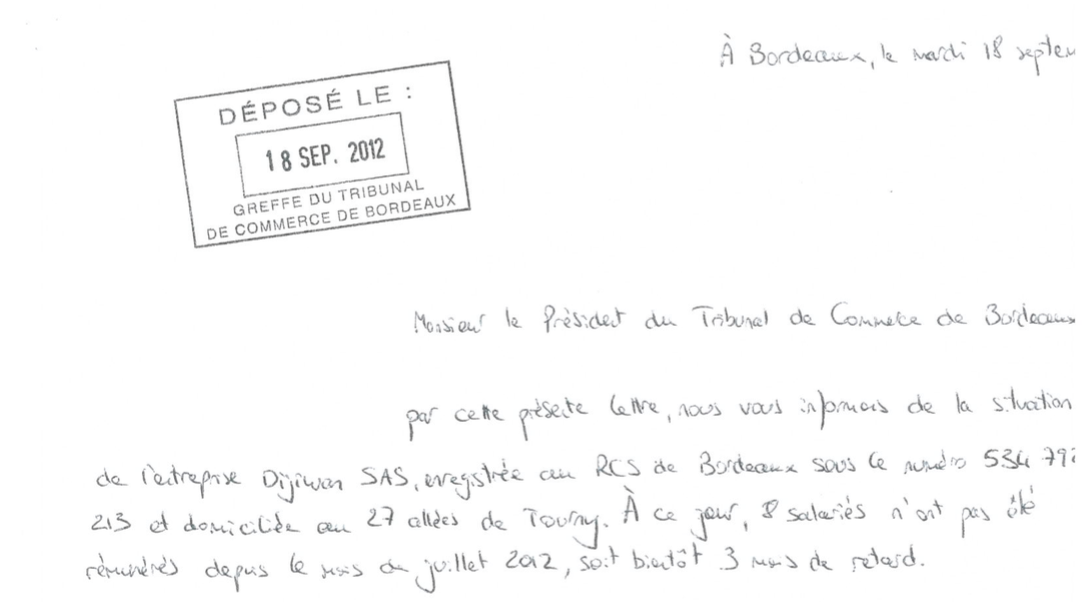 À Bordeaux, le mardi 18 septem
DÉPOSÉ LE :
18 SEP. 2012
GREFFE DU TRIBUNAL
DE COMMERCE DE BORDEAUX
Monsieur le Président du Tribunal de Commerce de Bordeaux
par cette présente lettre, nous vous informons de la situation
de l'entreprise Dijiwan SAS, enregistrée au RCS de Bordeaux sous le numéro 534 792
213 et domiciliée au 27 allées de Tourny. À ce jour, 8 salariés n'ont pas été
rémunérés depuis le mois de juillet 2012, soit bientôt 3 mois de retard.